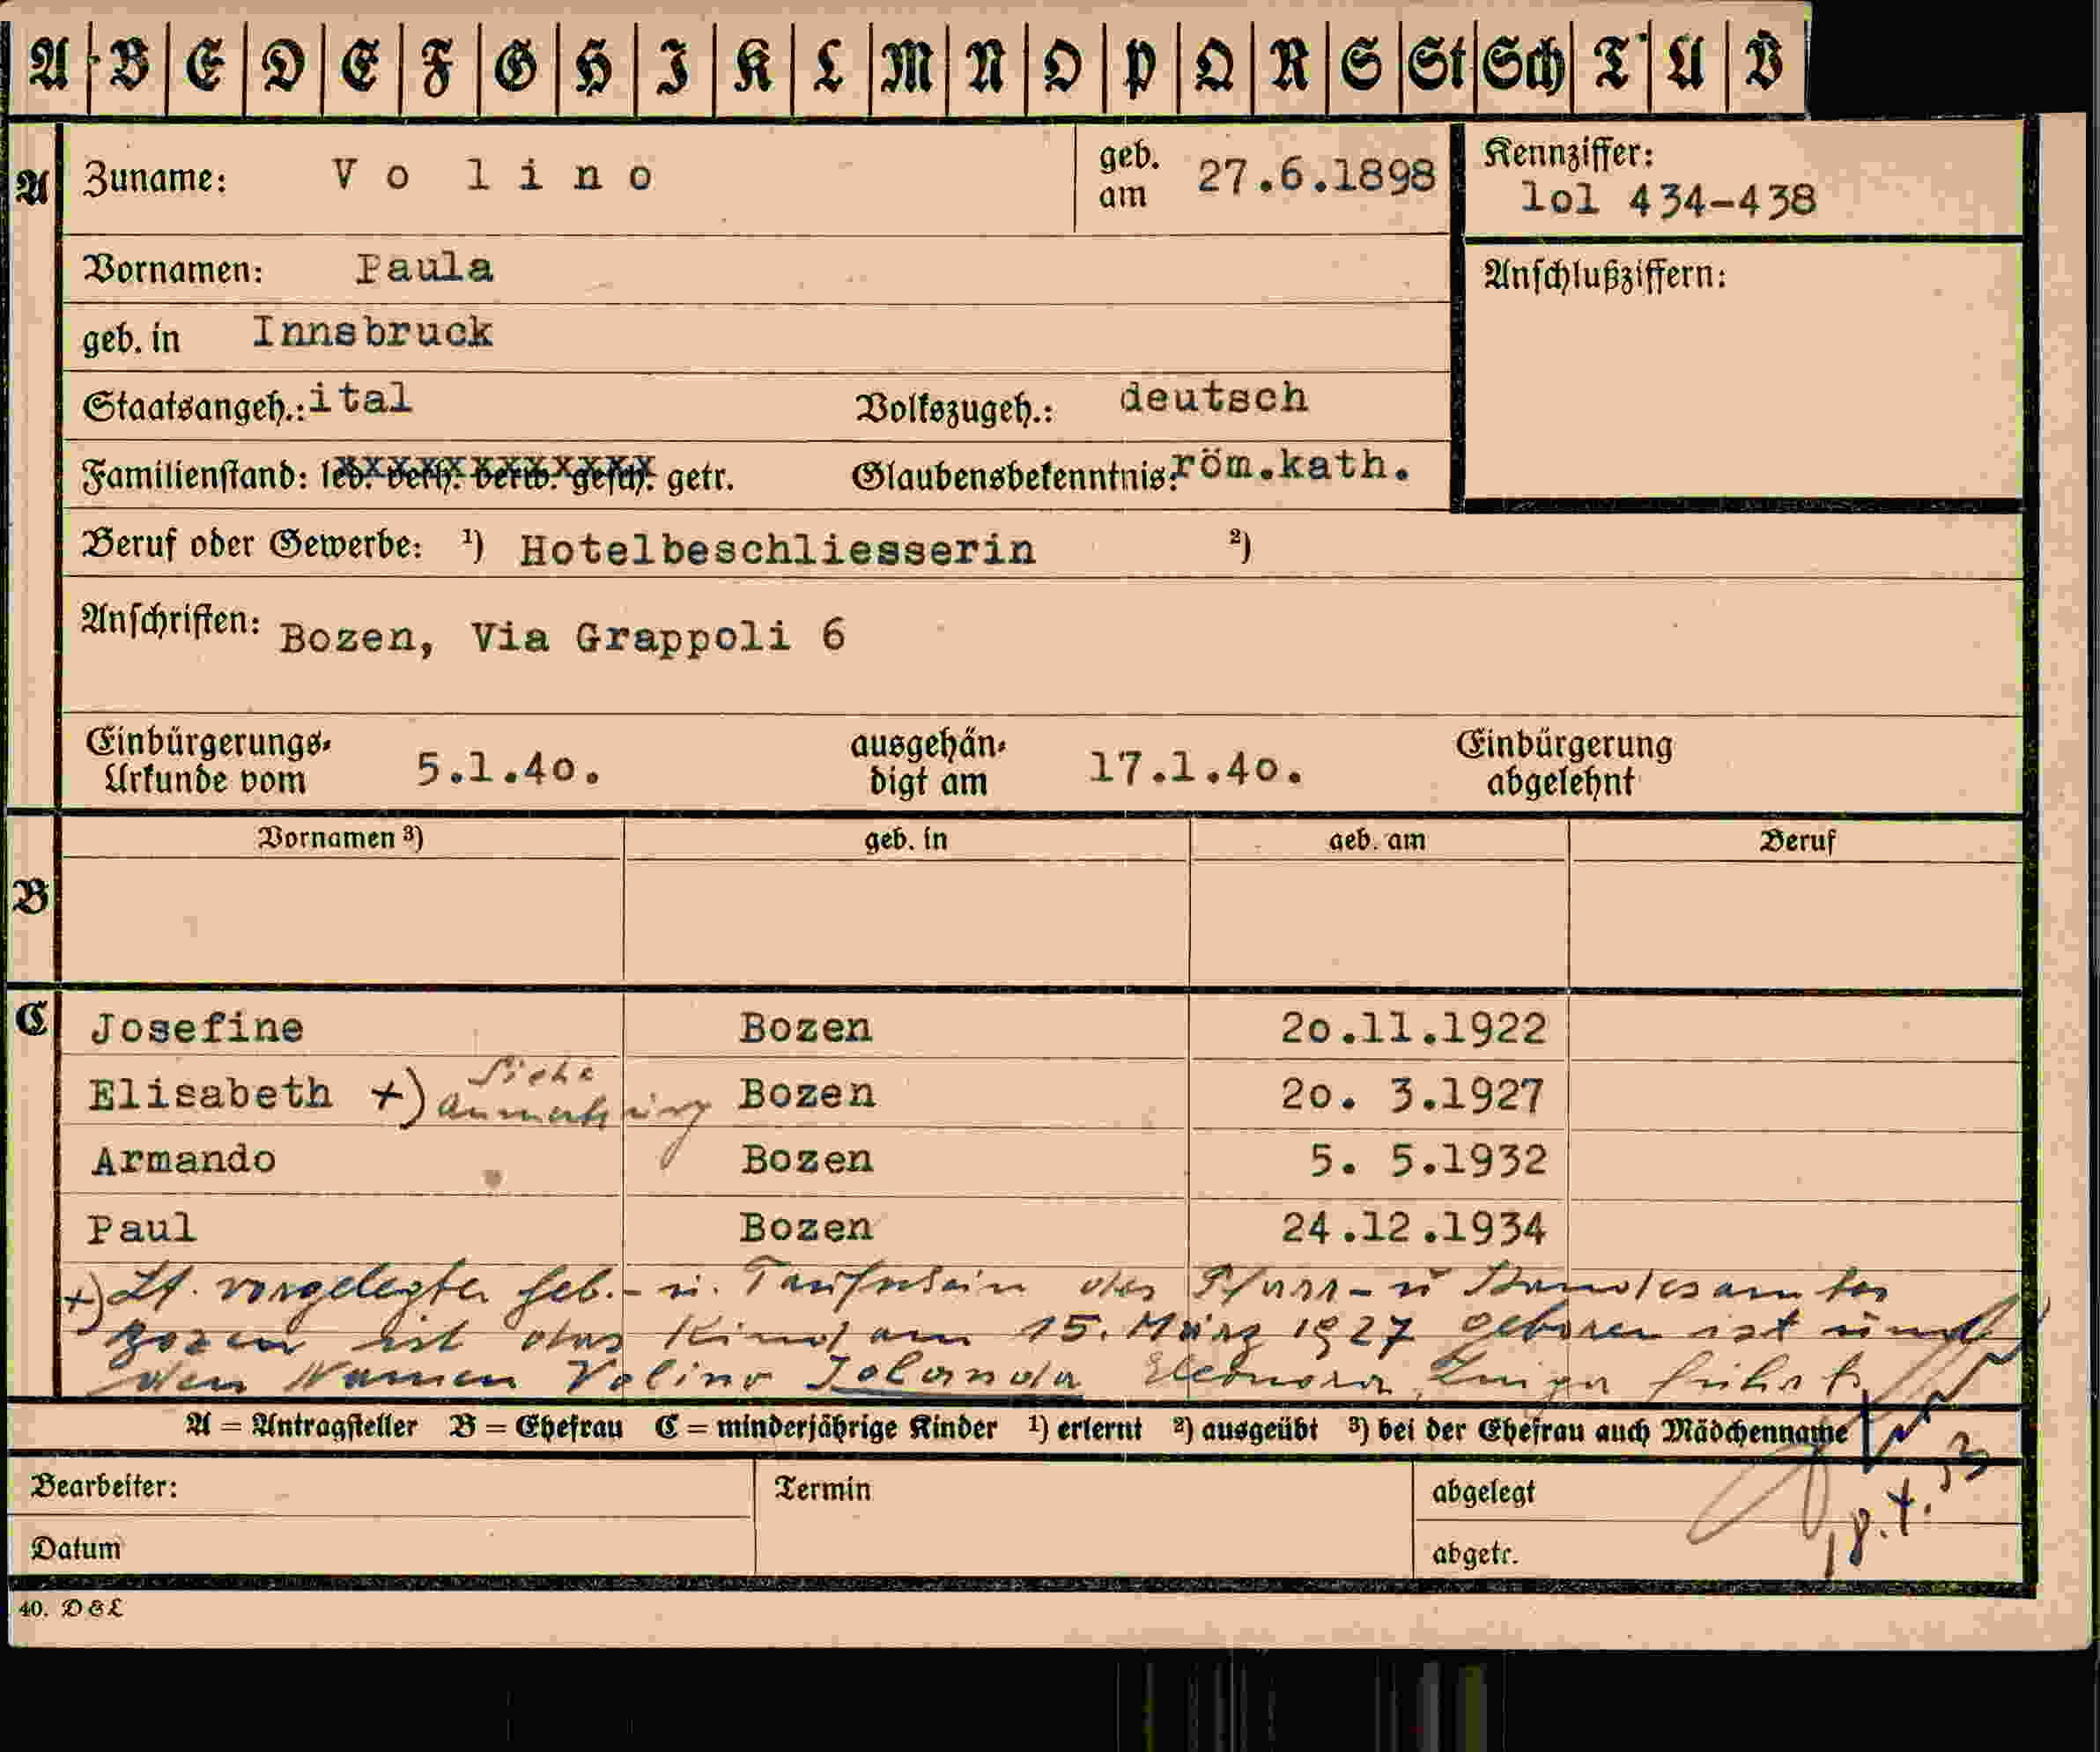 A B C D E F G H I K L M N O P Q R S St Sch T U V
A Zuname: Volino geb. am 27.6.1898 Kennziffer: lol 434-438
Vornamen: Paula Anschlußziffern:
geb. in Innsbruck
Staatsangeh.: ital Volkszugeh.: deutsch
Familienstand: led. verh. verw. gesch. getr. Glaubensbekenntnis: röm.kath.
Beruf oder Gewerbe: 1) Hotelbeschliesserin 2)
Anschriften: Bozen, Via Grappoli 6
Einbürgerungs- ausgehän- Einbürgerung
Urkunde vom 5.1.4o. digt am 17.1.4o. abgelehnt
Vornamen 3) geb. in geb. am Beruf
B
C Josefine Bozen 2o.11.1922
Elisabeth +) Siehe Anmerkung Bozen 2o. 3.1927
Armando Bozen 5. 5.1932
Paul Bozen 24.12.1934
+) Lt. vorgelegter Geb.- u. Taufschein des Pfarr- u Standesamtes
Bozen ist das Kind am 15. März 1927 geboren ist und
den Namen Volino Iolanda Eleonora, Luiga führt
A = Antragsteller B = Ehefrau C = minderjährige Kinder 1) erlernt 2) ausgeübt 3) bei der Ehefrau auch Mädchenname
Bearbeiter: Termin abgelegt
Datum abgetr.
40. D&L